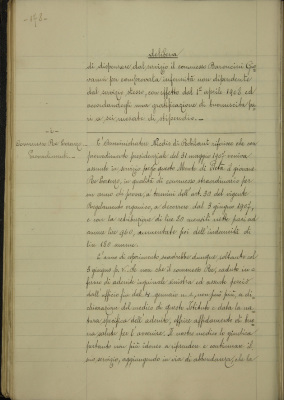 -198-
delibera
di dispensare dal servizio il commesso Baroncini Gio-
vanni per comprovata infermità non dipendente
dal servizio stesso, con effetto dal 1° aprile 1908 ed
accordandogli una gratificazione di buonuscita pa-
ri a sei mesate di stipendio.
-2-
Commesso Pio Lorenzo
L'Amministratore Pietro di riferisce che con
provvedimento presidenziale del 31 maggio 1907 veniva
assunto in servizio presso questo Monte di Pietà il giovane
Pio Lorenzo, in qualità di commesso straordinario per
un anno di prova, a termini dell'art. 30 del vigente
Regolamento organico, a decorrere dal 3 giugno 1907,
e con la retribuzione di lire 30 mensili nette pari ad
annue lire 360, aumentate poi dell'indennità di
lire 120 annue.
L'anno di esperimento scadrebbe dunque soltanto col
3 giugno p.v. Ma ora che il commesso Pio, caduto in-
fermo di adenite inguinale sinistra ed assente perciò
dall'ufficio fin dal gennaio u.s., non può più, a di-
chiarazione del medico di questo Istituto e data la na-
tura specifica dell'adenite, offrire affidamento di buo-
na salute per l'avvenire. Il nostro medico lo giudica
pertanto non più idoneo a riprendere e continuare il
suo servizio, aggiungendo in via di abbondanza, che la